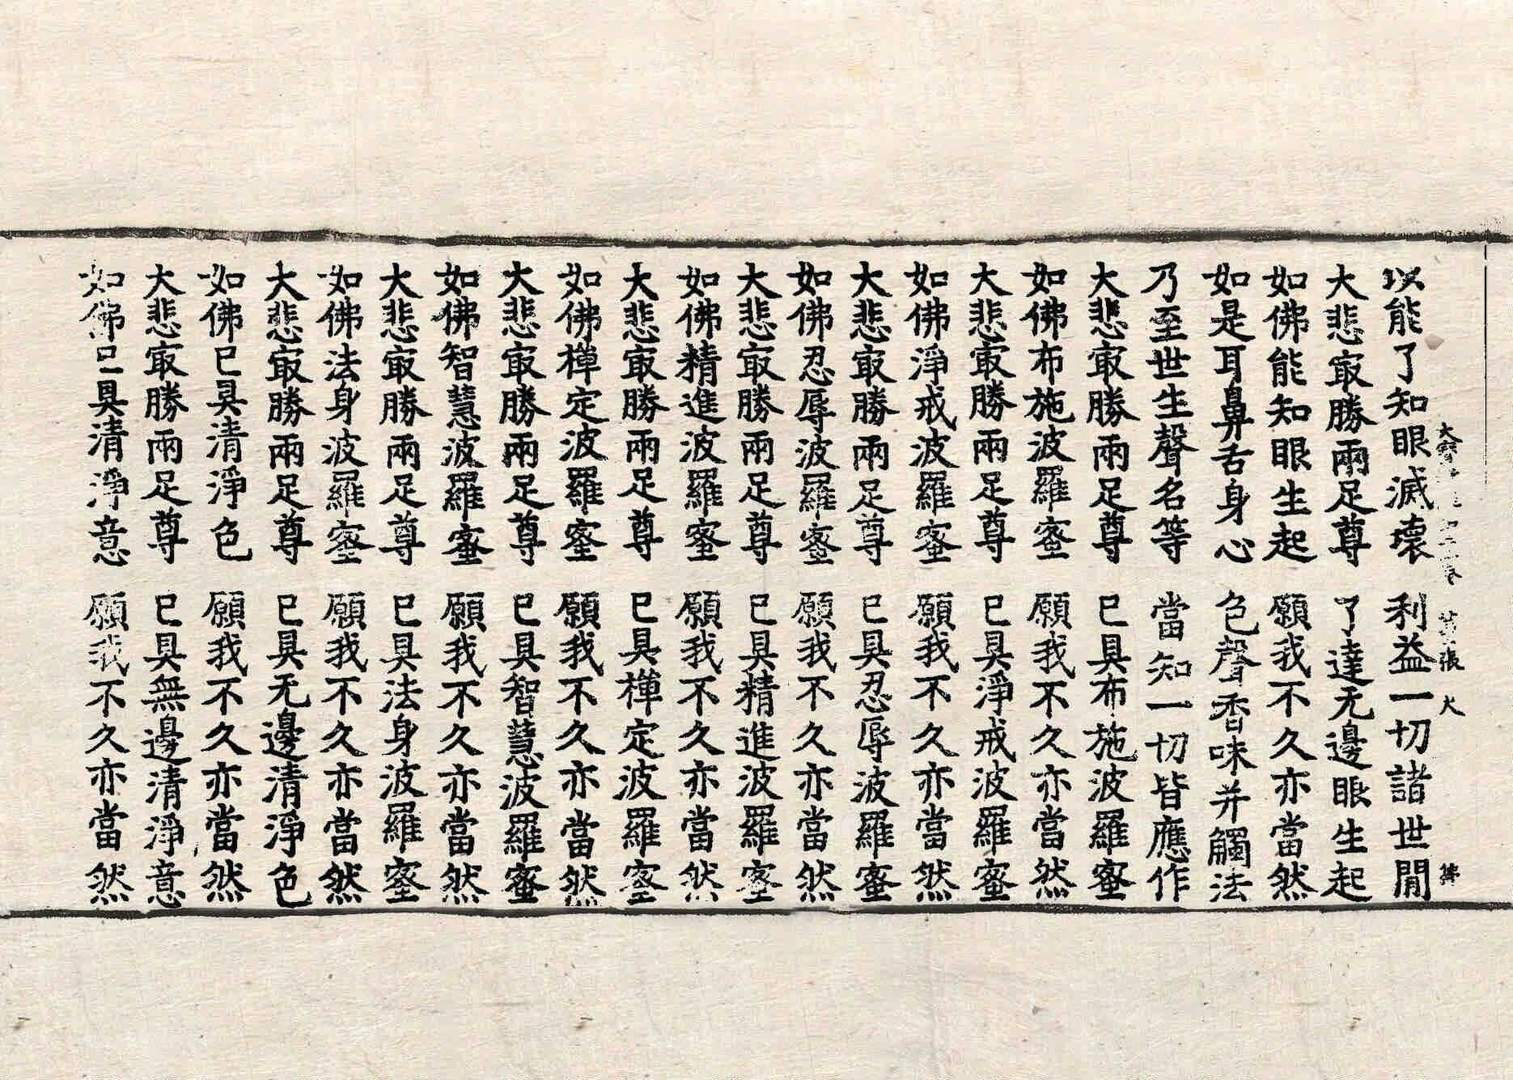 以能了知眼滅壞　利益一切諸世閒
大寶　　　卷　張　火
大悲㝡勝兩足尊　了達无邊眼生起
如佛能知眼生起　願我不久亦當然
如是耳鼻舌身心　色聲香味并觸法
乃至世生聲名等　當知一切皆應作
大悲㝡勝兩足尊　已具布施波羅蜜
如佛布施波羅蜜　願我不久亦當然
大悲㝡勝兩足尊　已具淨戒波羅蜜
如佛淨戒波羅蜜　願我不久亦當然
大悲㝡勝兩足尊　已具忍辱波羅蜜
如佛忍辱波羅蜜　願我不久亦當然
大悲㝡勝兩足尊　已具精進波羅蜜
如佛精進波羅蜜　願我不久亦當然
大悲㝡勝兩足尊　已具禪定波羅蜜
如佛禪定波羅蜜　願我不久亦當然
大悲㝡勝兩足尊　已具智慧波羅蜜
如佛智慧波羅蜜　願我不久亦當然
大悲㝡勝兩足尊　已具法身波羅蜜
如佛法身波羅蜜　願我不久亦當然
大悲㝡勝兩足尊　已具无邊清淨色
如佛已具清淨色　願我不久亦當然
大悲㝡勝兩足尊　已具無邊清淨意
如佛已具清淨意　願我不久亦當然